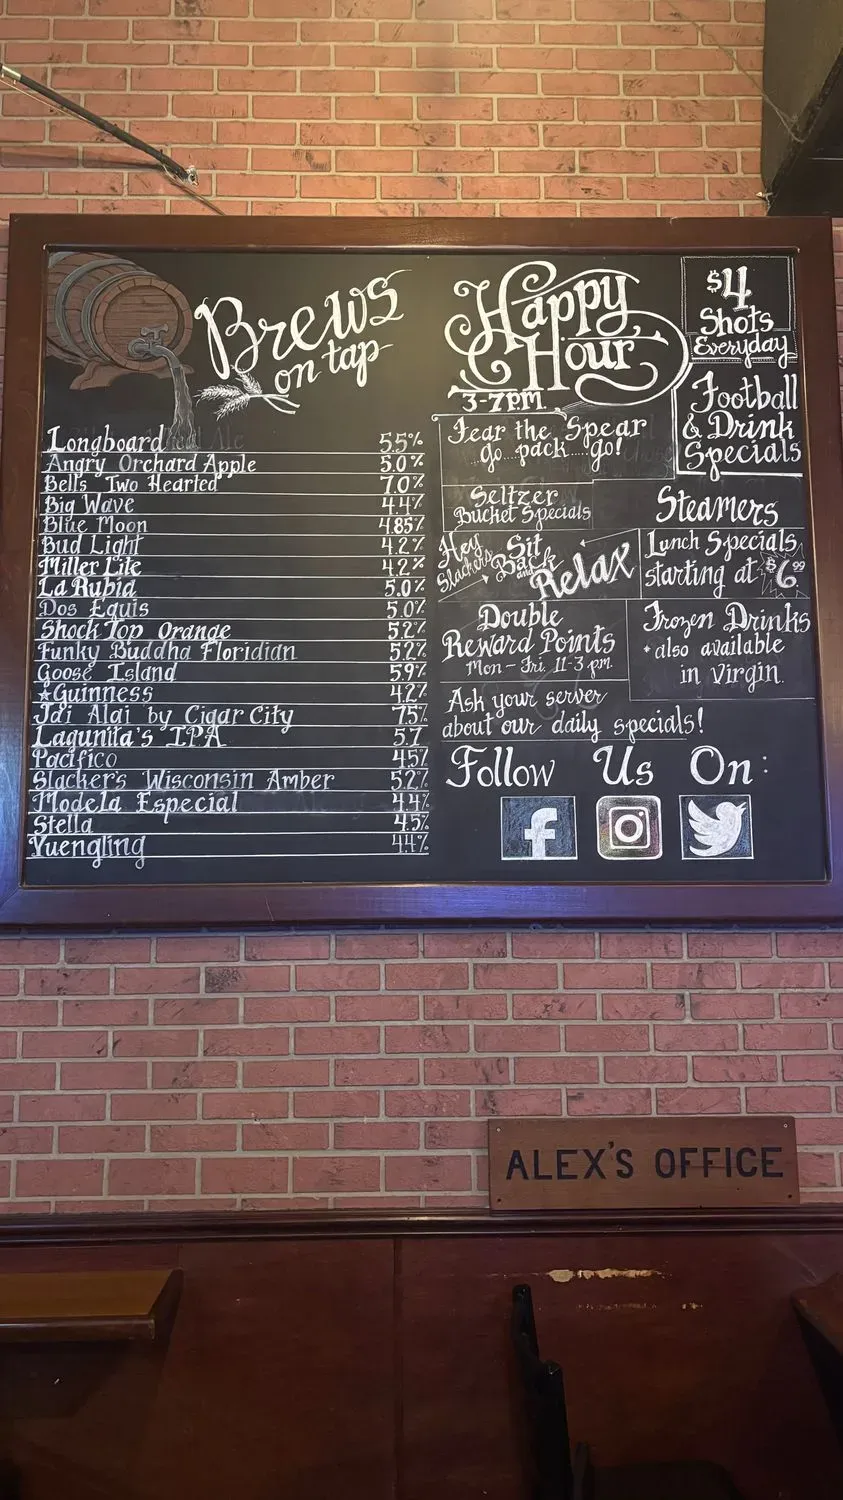 Brews
on tap
Longboard 5.5%
Angry Orchard Apple 5.0%
Bells Two Hearted 7.0%
Big Wave 4.4%
Blue Moon 4.85%
Bud Light 4.2%
Miller Lite 4.2%
La Rubia 5.0%
Dos Equis 5.0%
Shock Top Orange 5.2%
Funky Buddha Floridian 5.2%
Goose Island 5.9%
★Guinness 4.2%
Jai Alai by Cigar City 7.5%
Lagunita's IPA 5.7
Pacifico 4.5%
Slacker's Wisconsin Amber 5.2%
Modela Especial 4.4%
Stella 4.5%
Yuengling 4.4%
Happy
Hour
3-7P.M.
$4
Shots
Everyday
Football
& Drink
Specials
Fear the Spear
go...pack.....go!
Seltzer
Bucket Specials
Steamers
Hey
Slackers
Sit
Back
and
Relax
Lunch Specials
starting at $6.99
Double
Reward Points
Mon - Fri 11-3 pm
Frozen Drinks
* also available
in Virgin
Ask your server
about our daily specials!
Follow Us On:
ALEX'S OFFICE